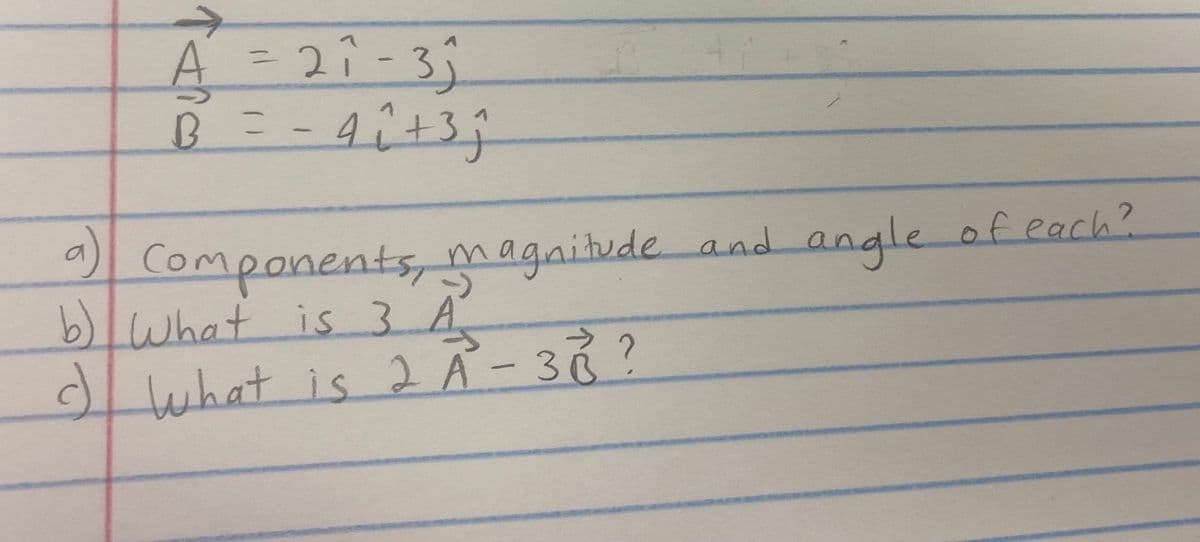 A⃗ = 2î - 3ĵ
B⃗ = - 4î + 3ĵ
a) Components, magnitude and angle of each?
b) What is 3 A⃗
c) What is 2 A⃗ - 3B⃗ ?